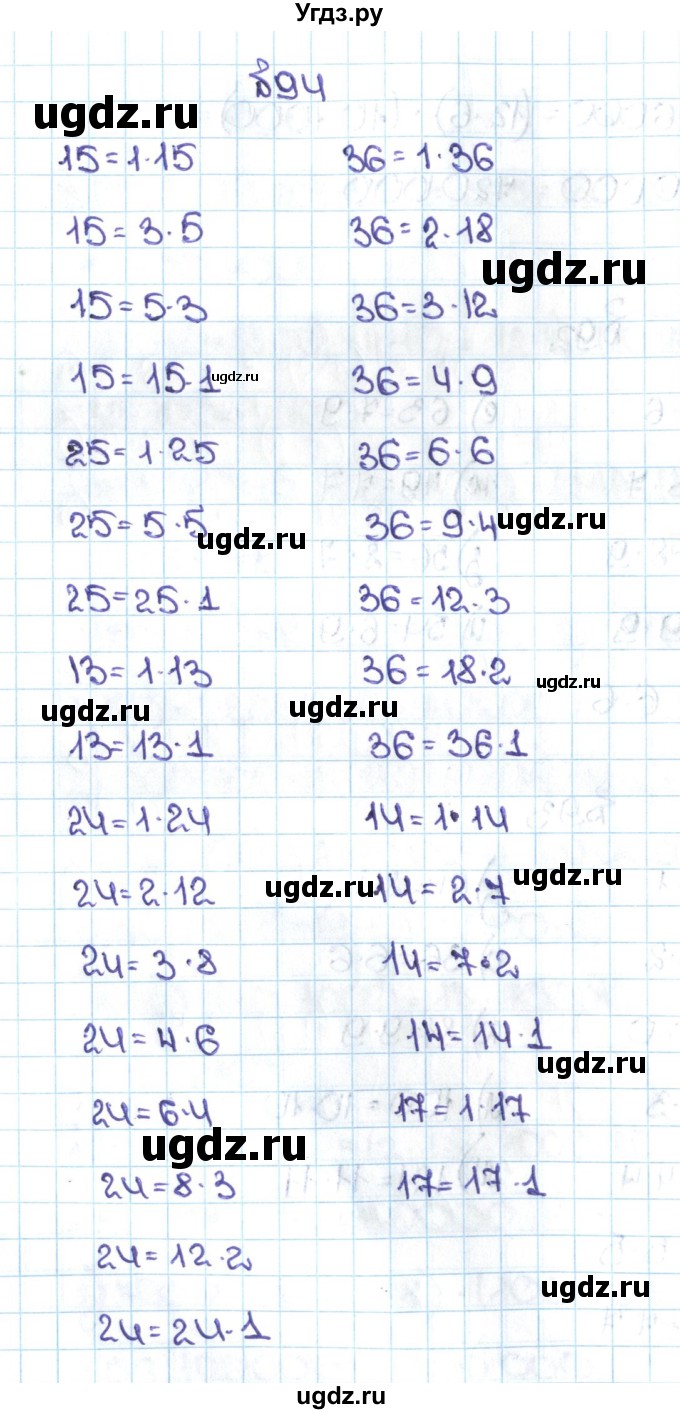 Угдз.ру
№94
ugdz.ru
15=1·15
15=3·5
15=5·3
15=15·1 ugdz.ru
25=1·25
25=5·5
ugdz.ru
25=25·1
13=1·13
ugdz.ru
13=13·1
24=1·24
24=2·12
24=3·8
24=4·6
24=6·4
ugdz.ru
24=8·3
24=12·2
24=24·1
36=1·36
36=2·18
ugdz.ru
36=3·12
36=4·9
36=6·6
36=9·4 ugdz.ru
36=12·3
36=18·2 ugdz.ru
ugdz.ru
36=36·1
14=1·14
ugdz.ru 14=2·7 ugdz.ru
14=7·2
14=14·1
ugdz.ru
17=1·17
17=17·1
ugdz.ru
ugdz.ru